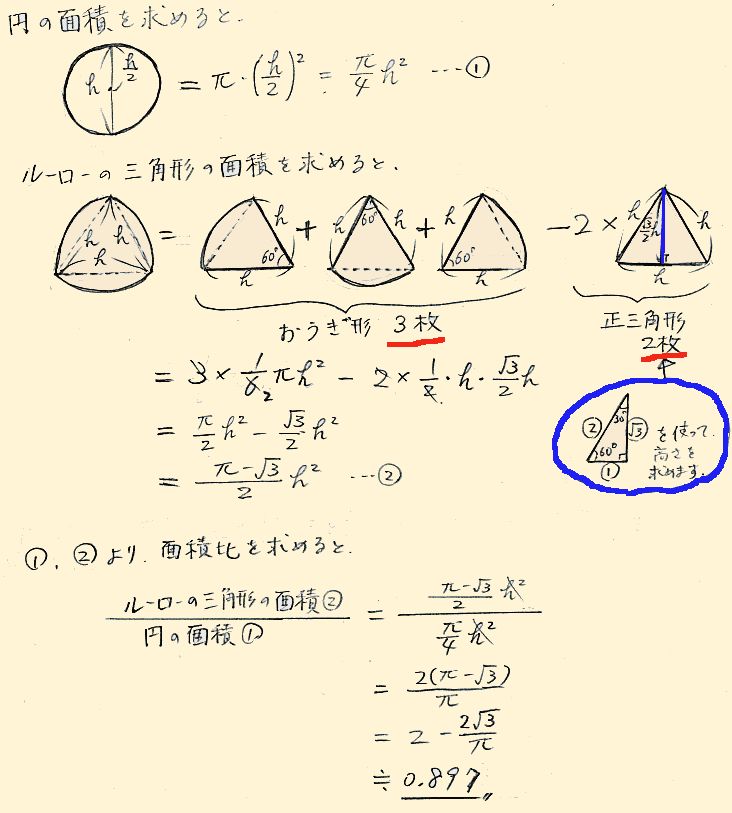 円の面積を求めると.
h h/2 = π・(h/2)² = π/4 h² ---①
ルーローの三角形の面積を求めると.
h h h = h 60° h + h 60° h + h 60° h − 2 × h √3/2 h h h
おうぎ形 3枚
正三角形
2枚
= 3 × 1/6 2 πh² − 2 × 1/2・h・√3/2 h
② 30° √3 60° ① を使って.
高さを
求めます.
= π/2 h² − √3/2 h²
= π−√3/2 h² ---②
①, ② より. 面積比を求めると.
ルーローの三角形の面積②/円の面積① = π−√3/2 h²/π/4 h²
= 2(π−√3)/π
= 2 − 2√3/π
≒ 0.897〃